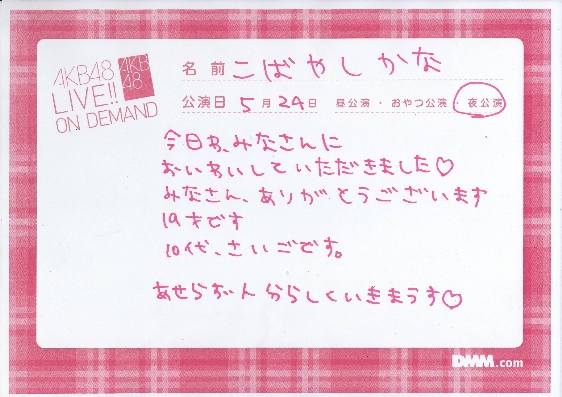 AKB48
LIVE!!
ON DEMAND
AKB
48
名前 こばやしかな
公演日 5月24日 昼公演・おやつ公演・夜公演
今日も、みなさんに
おいわいしていただきました♡
みなさん、ありがとうございます
19才です
10代、さいごです。
あせらず らしくいきまうす♡
DMM.com